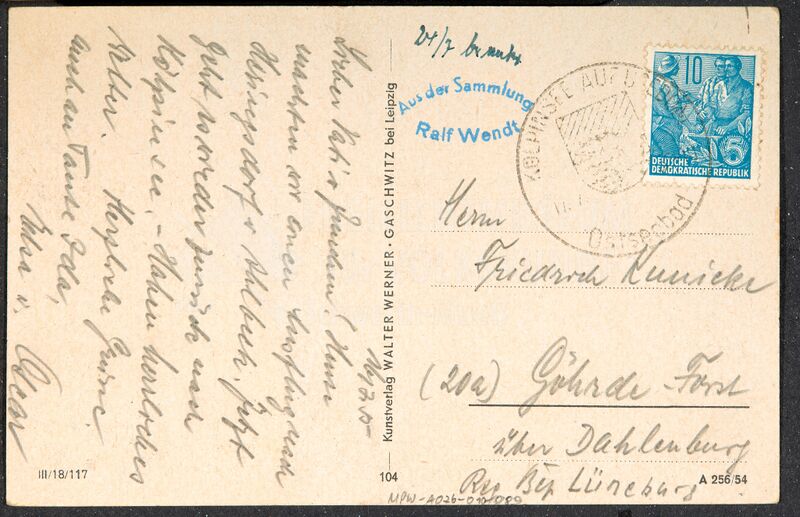 24/7
Aus der Sammlung
Ralf Wendt
KÖLPINSEE AUF USEDOM
Ostseebad
10
DEUTSCHE
DEMOKRATISCHE REPUBLIK
5
16/7 55
Lieber Vati u
Heute
machten wir einen Ausflug nach
Heringsdorf u Ahlbeck. Jetzt
geht es wieder zurück nach
Kölpinsee. - Haben herrliches
Wetter. Herzliche Grüße
auch an Tante Ida,
Oscar
Kunstverlag WALTER WERNER · GASCHWITZ bei Leipzig
Herrn
Friedrich Kunicke
(20a) Göhrde-Forst
über Dahlenburg
Reg Bez Lüneburg
III/18/117
104
A 256/54
MPW-A026-010-089